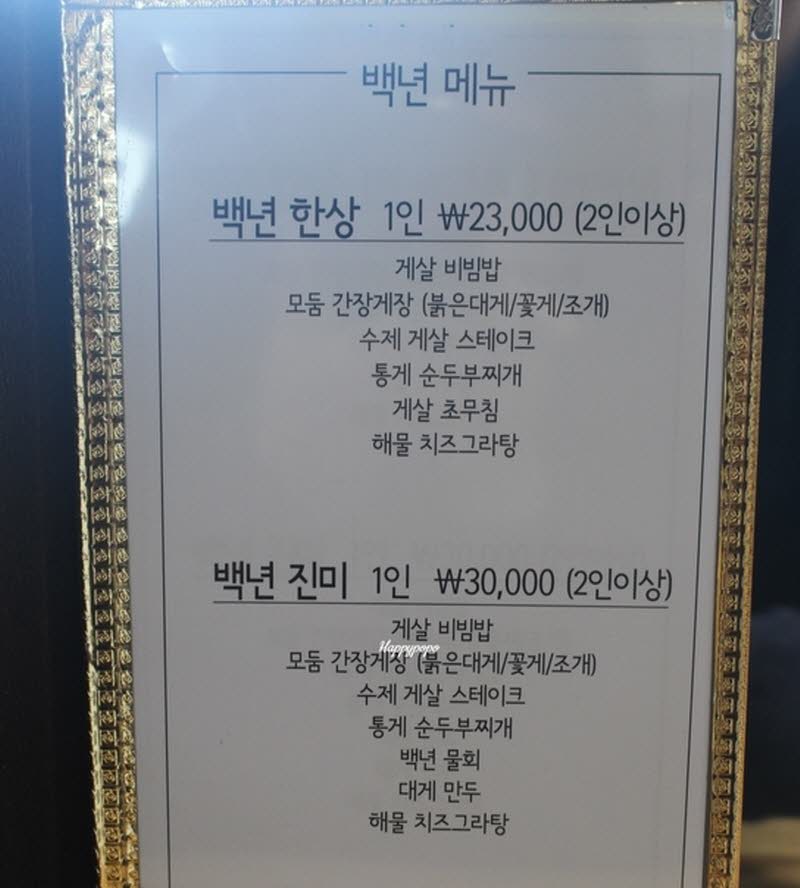 백년 메뉴
백년 한상 1인 ₩23,000 (2인이상)
게살 비빔밥
모둠 간장게장 (붉은대게/꽃게/조개)
수제 게살 스테이크
통게 순두부찌개
게살 초무침
해물 치즈그라탕
백년 진미 1인 ₩30,000 (2인이상)
게살 비빔밥
Happypopo
모둠 간장게장 (붉은대게/꽃게/조개)
수제 게살 스테이크
통게 순두부찌개
백년 물회
대게 만두
해물 치즈그라탕